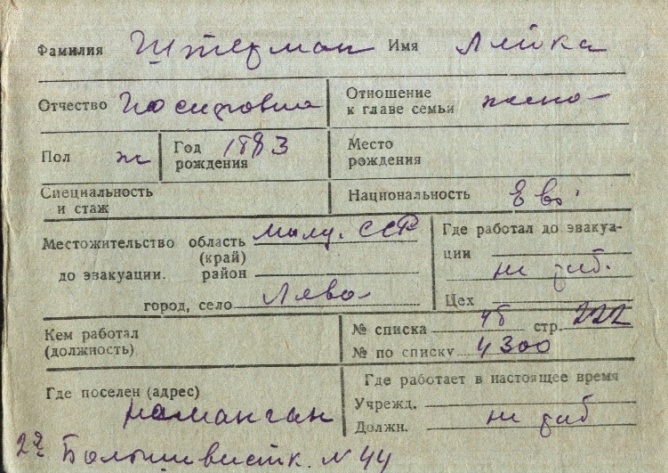 Фамилия Штерман Имя Лейка
Отчество Иосифовна Отношение к главе семьи жена
Пол ж Год рождения 1883 Место рождения
Специальность и стаж Национальность Евр.
Местожительство до эвакуации. область (край) Молд. ССР район
город, село Лёво
Где работал до эвакуации не раб.
Цех
Кем работал (должность)
№ списка 4б стр. 222
№ по списку 4300
Где поселен (адрес)
наманган
Где работает в настоящее время
Учрежд.
Должн. не раб
2я Большевистк. N 44